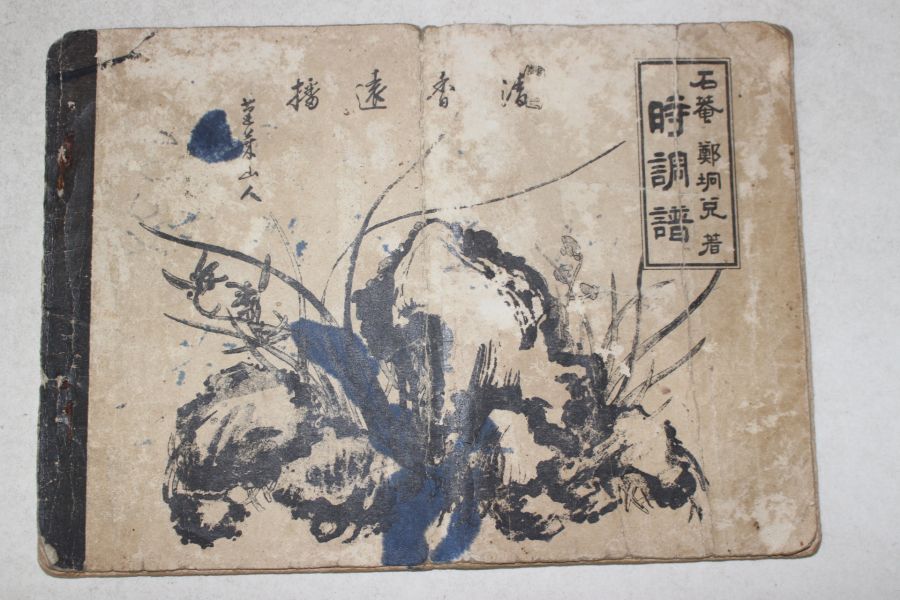 石菴 鄭坰兌 著
時調譜
清香遠播
蓬萊山人